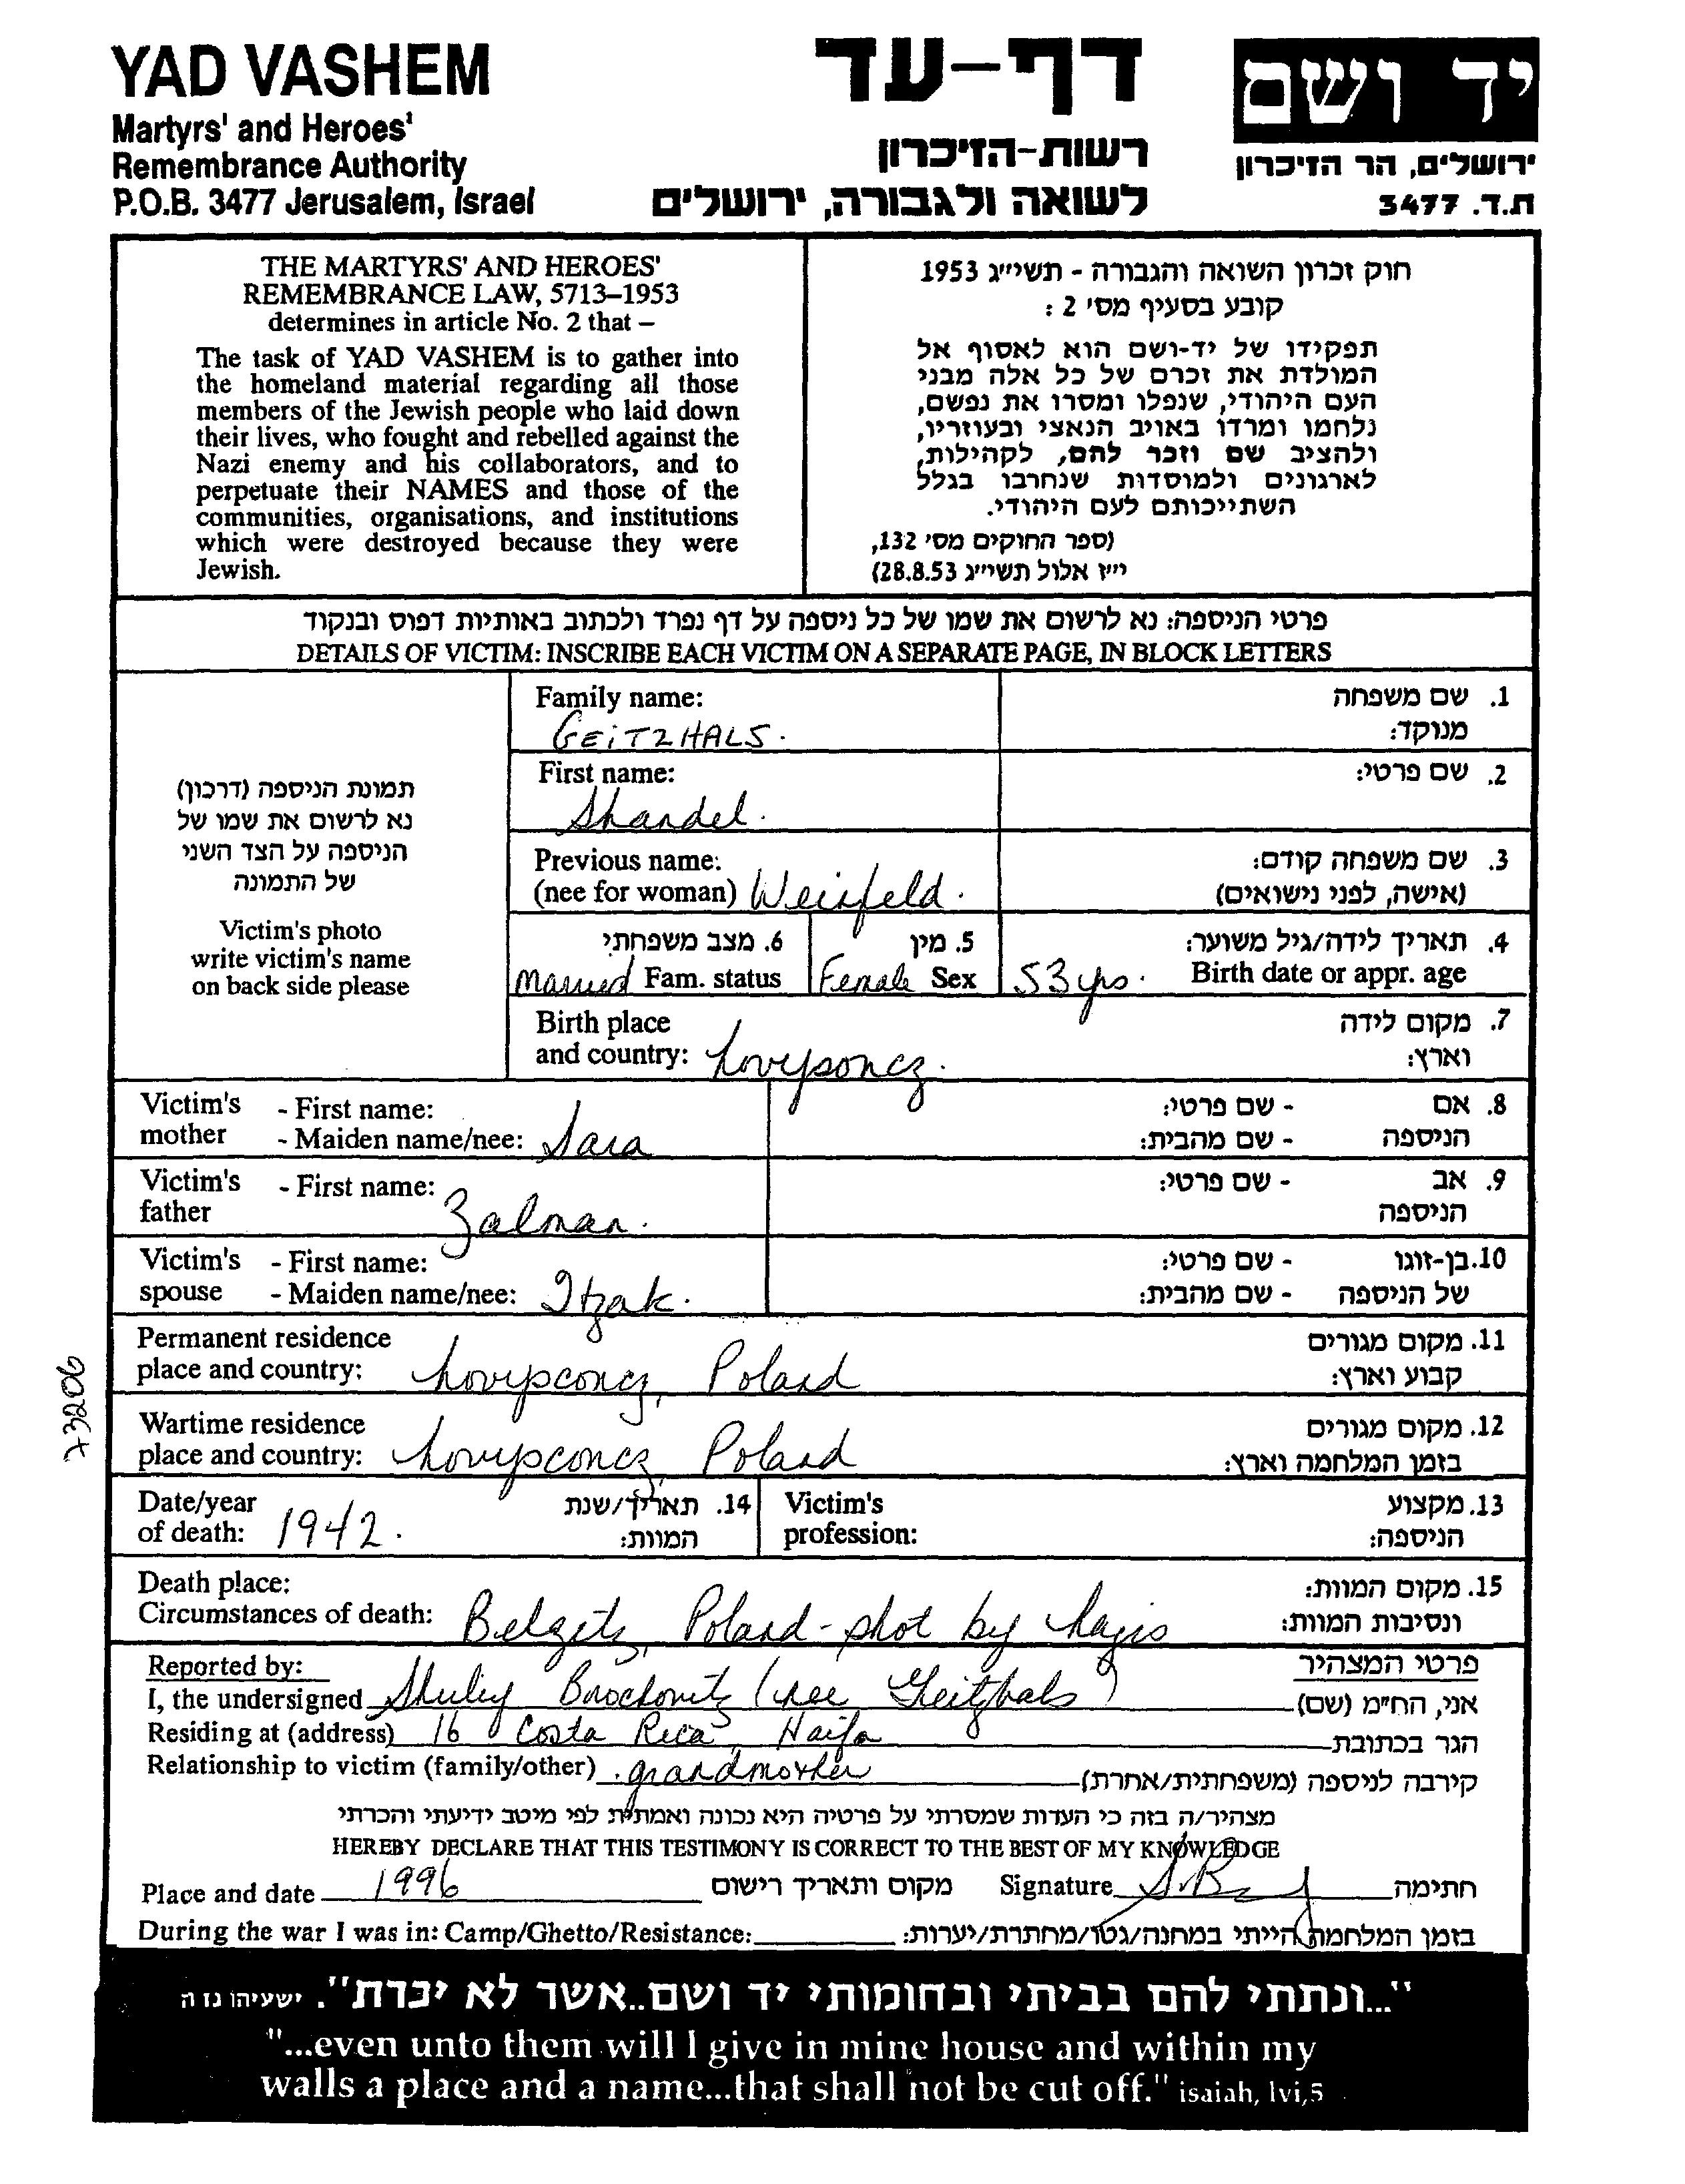 YAD VASHEM
Martyrs' and Heroes'
Remembrance Authority
P.O.B. 3477 Jerusalem, Israel
דף-עד
רשות-הזיכרון
לשואה ולגבורה, ירושלים
יד ושם
ירושלים, הר הזיכרון
ת.ד. 3477
THE MARTYRS' AND HEROES'
REMEMBRANCE LAW, 5713–1953
determines in article No. 2 that –
The task of YAD VASHEM is to gather into
the homeland material regarding all those
members of the Jewish people who laid down
their lives, who fought and rebelled against the
Nazi enemy and his collaborators, and to
perpetuate their NAMES and those of the
communities, organisations, and institutions
which were destroyed because they were
Jewish.
חוק זכרון השואה והגבורה - תשי״ג 1953
קובע בסעיף מס' 2 :
תפקידו של יד-ושם הוא לאסוף אל
המולדת את זכרם של כל אלה מבני
העם היהודי, שנפלו ומסרו את נפשם,
נלחמו ומרדו באויב הנאצי ובעוזריו,
ולהציב שם וזכר להם, לקהילות,
לארגונים ולמוסדות שנחרבו בגלל
השתייכותם לעם היהודי.
(ספר החוקים מס' 132,
י״ז אלול תשי״ג 28.8.53)
פרטי הניספה: נא לרשום את שמו של כל ניספה על דף נפרד ולכתוב באותיות דפוס ובנקוד
DETAILS OF VICTIM: INSCRIBE EACH VICTIM ON A SEPARATE PAGE, IN BLOCK LETTERS
תמונת הניספה (דרכון)
נא לרשום את שמו של
הניספה על הצד השני
של התמונה
Victim's photo
write victim's name
on back side please
Family name: 1. שם משפחה
GEITZHALS. מנוקד:
First name: 2. שם פרטי:
Shandel.
Previous name: 3. שם משפחה קודם:
(nee for woman) Weisfeld. (אישה, לפני נישואים)
6. מצב משפחתי 5. מין 4. תאריך לידה/גיל משוער:
Married Fam. status Female Sex 53 yrs. Birth date or appr. age
Birth place 7. מקום לידה
and country: Lovysoncz. וארץ:
Victim's - First name: - שם פרטי: 8. אם
mother - Maiden name/nee: Sara - שם מהבית: הניספה
Victim's - First name: - שם פרטי: 9. אב
father Zalman. הניספה
Victim's - First name: - שם פרטי: 10. בן-זוגו
spouse - Maiden name/nee: Itzak. - שם מהבית: של הניספה
Permanent residence 11. מקום מגורים
place and country: Lovysconcz, Poland קבוע וארץ:
Wartime residence 12. מקום מגורים
place and country: Lovysconcz, Poland בזמן המלחמה וארץ:
73206
Date/year 14. תאריך/שנת Victim's 13. מקצוע
of death: 1942. המוות: profession: הניספה:
Death place: 15. מקום המוות:
Circumstances of death: Belzitz, Poland - shot by Nazis ונסיבות המוות:
Reported by: פרטי המצהיר
I, the undersigned Shuley Boochovitz (nee Geitzhals) אני, הח״מ (שם)
Residing at (address) 16 Costa Rica, Haifa הגר בכתובת
Relationship to victim (family/other) . grandmother קירבה לניספה (משפחתית/אחרת)
מצהיר/ה בזה כי העדות שמסרתי על פרטיה היא נכונה ואמתית לפי מיטב ידיעתי והכרתי
HEREBY DECLARE THAT THIS TESTIMONY IS CORRECT TO THE BEST OF MY KNOWLEDGE
Place and date 1996 מקום ותאריך רישום Signature חתימה
During the war I was in: Camp/Ghetto/Resistance: בזמן המלחמה הייתי במחנה/גטו/מחתרת/יערות:
"...ונתתי להם בביתי ובחומותי יד ושם..אשר לא יכרת". ישעיהו נו ה
"...even unto them will I give in mine house and within my
walls a place and a name...that shall not be cut off." isaiah, lvi,5